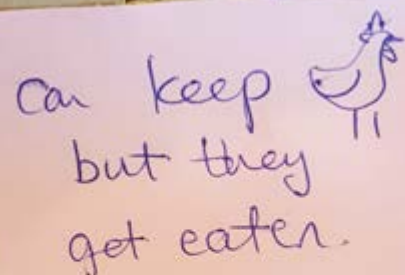 Can keep
but they
get eaten.